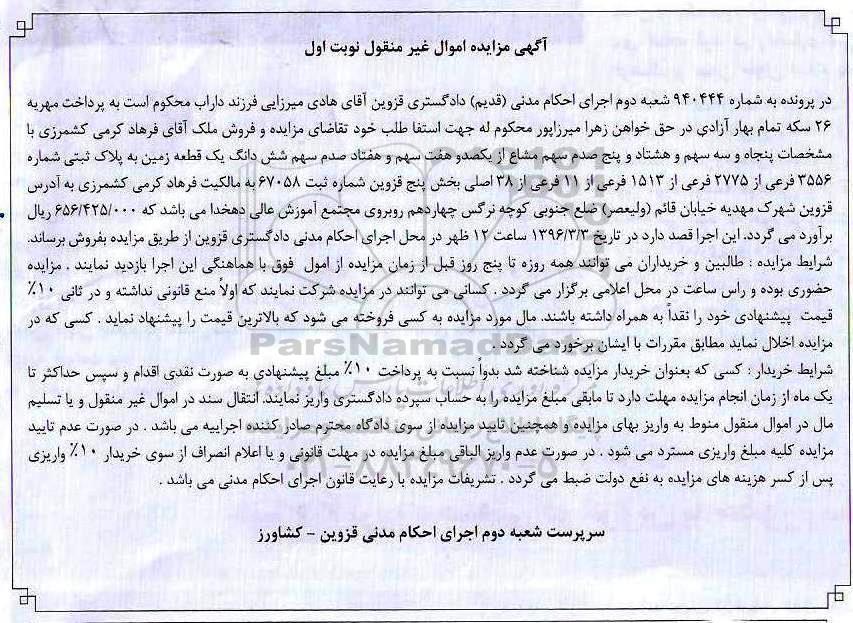 آگهی مزایده اموال غیر منقول نوبت اول
در پرونده به شماره ۹۴۰۴۴۴ شعبه دوم اجرای احکام مدنی (قدیم) دادگستری قزوین آقای هادی میرزایی فرزند داراب محکوم است به پرداخت مهریه
۲۶ سکه تمام بهار آزادی در حق خواهن زهرا میرزاپور محکوم له جهت استفا طلب خود تقاضای مزایده و فروش ملک آقای فرهاد کرمی کشمرزی با
مشخصات پنجاه و سه سهم و هشتاد و پنج صدم سهم مشاع از یکصدو هفت سهم و هفتاد صدم سهم شش دانگ یک قطعه زمین به پلاک ثبتی شماره
۳۵۵۶ فرعی از ۲۷۷۵ فرعی از ۱۵۱۳ فرعی از ۱۱ فرعی از ۳۸ اصلی بخش پنج قزوین شماره ثبت ۶۷۰۵۸ به مالکیت فرهاد کرمی کشمرزی به آدرس
قزوین شهرک مهدیه خیابان قائم (ولیعصر) ضلع جنوبی کوچه نرگس چهاردهم روبروی مجتمع آموزش عالی دهخدا می باشد که ۶۵۶/۴۲۵/۰۰۰ ریال
برآورد می گردد. این اجرا قصد دارد در تاریخ ۱۳۹۶/۳/۳ ساعت ۱۲ ظهر در محل اجرای احکام مدنی دادگستری قزوین از طریق مزایده بفروش برساند.
شرایط مزایده : طالبین و خریداران می توانند همه روزه تا پنج روز قبل از زمان مزایده از امول فوق با هماهنگی این اجرا بازدید نمایند . مزایده
حضوری بوده و راس ساعت در محل اعلامی برگزار می گردد . کسانی می توانند در مزایده شرکت نمایند که اولاً منع قانونی نداشته و در ثانی ۱۰٪
قیمت پیشنهادی خود را نقداً به همراه داشته باشند. مال مورد مزایده به کسی فروخته می شود که بالاترین قیمت را پیشنهاد نماید . کسی که در
مزایده اخلال نماید مطابق مقررات با ایشان برخورد می گردد .
ParsNamadData
شرایط خریدار : کسی که بعنوان خریدار مزایده شناخته شد بدواً نسبت به پرداخت ۱۰٪ مبلغ پیشنهادی به صورت نقدی اقدام و سپس حداکثر تا
یک ماه از زمان انجام مزایده مهلت دارد تا مابقی مبلغ مزایده را به حساب سپرده دادگستری واریز نمایند. انتقال سند در اموال غیر منقول و یا تسلیم
مال در اموال منقول منوط به واریز بهای مزایده و همچنین تایید مزایده از سوی دادگاه محترم صادر کننده اجراییه می باشد . در صورت عدم تایید
مزایده کلیه مبلغ واریزی مسترد می شود . در صورت عدم واریز الباقی مبلغ مزایده در مهلت قانونی و یا اعلام انصراف از سوی خریدار ۱۰٪ واریزی
پس از کسر هزینه های مزایده به نفع دولت ضبط می گردد . تشریفات مزایده با رعایت قانون اجرای احکام مدنی می باشد .
سرپرست شعبه دوم اجرای احکام مدنی قزوین - کشاورز